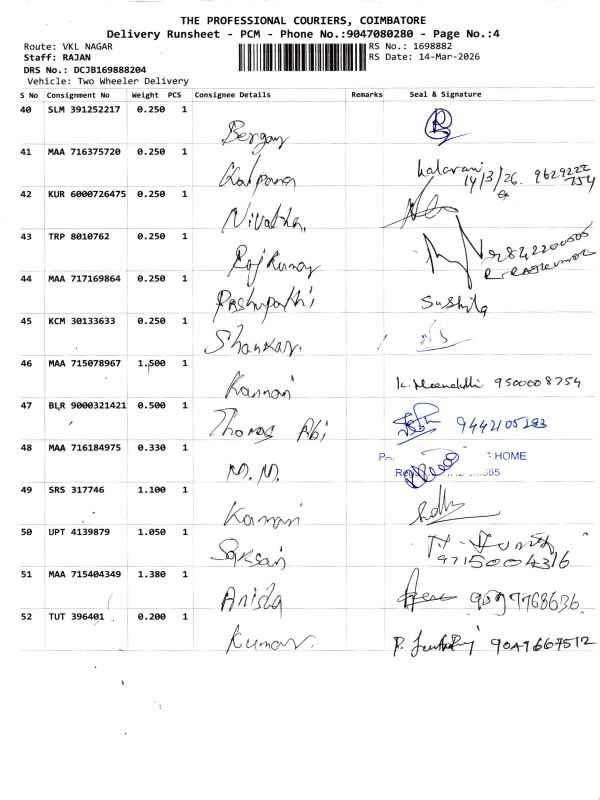 THE PROFESSIONAL COURIERS, COIMBATORE
Delivery Runsheet - PCM - Phone No.:9047080280 - Page No.:4
Route: VKL NAGAR
RS No.: 1698882
Staff: RAJAN
RS Date: 14-Mar-2026
DRS No.: DCJB169888204
Vehicle: Two Wheeler Delivery
S No Consignment No Weight PCS Consignee Details Remarks Seal & Signature
40 SLM 391252217 0.250 1
41 MAA 716375720 0.250 1
Kalpana
14/3/26. 9629222
754
42 KUR 6000726475 0.250 1
Nivatha.
43 TRP 8010762 0.250 1
Raj Kumar
44 MAA 717169864 0.250 1
Pashupathi Sushila
45 KCM 30133633 0.250 1
Shankar.
46 MAA 715078967 1.500 1
Kannan K. Meenakshi 9500008754
47 BLR 9000321421 0.500 1
Thomas Abi 9442105183
48 MAA 716184975 0.330 1
M. M.
HOME
49 SRS 317746 1.100 1
Kannan
50 UPT 4139879 1.050 1
9715004316
51 MAA 715404349 1.380 1
Anisha 9097768636
52 TUT 396401 0.200 1
Kumar. 9047667512